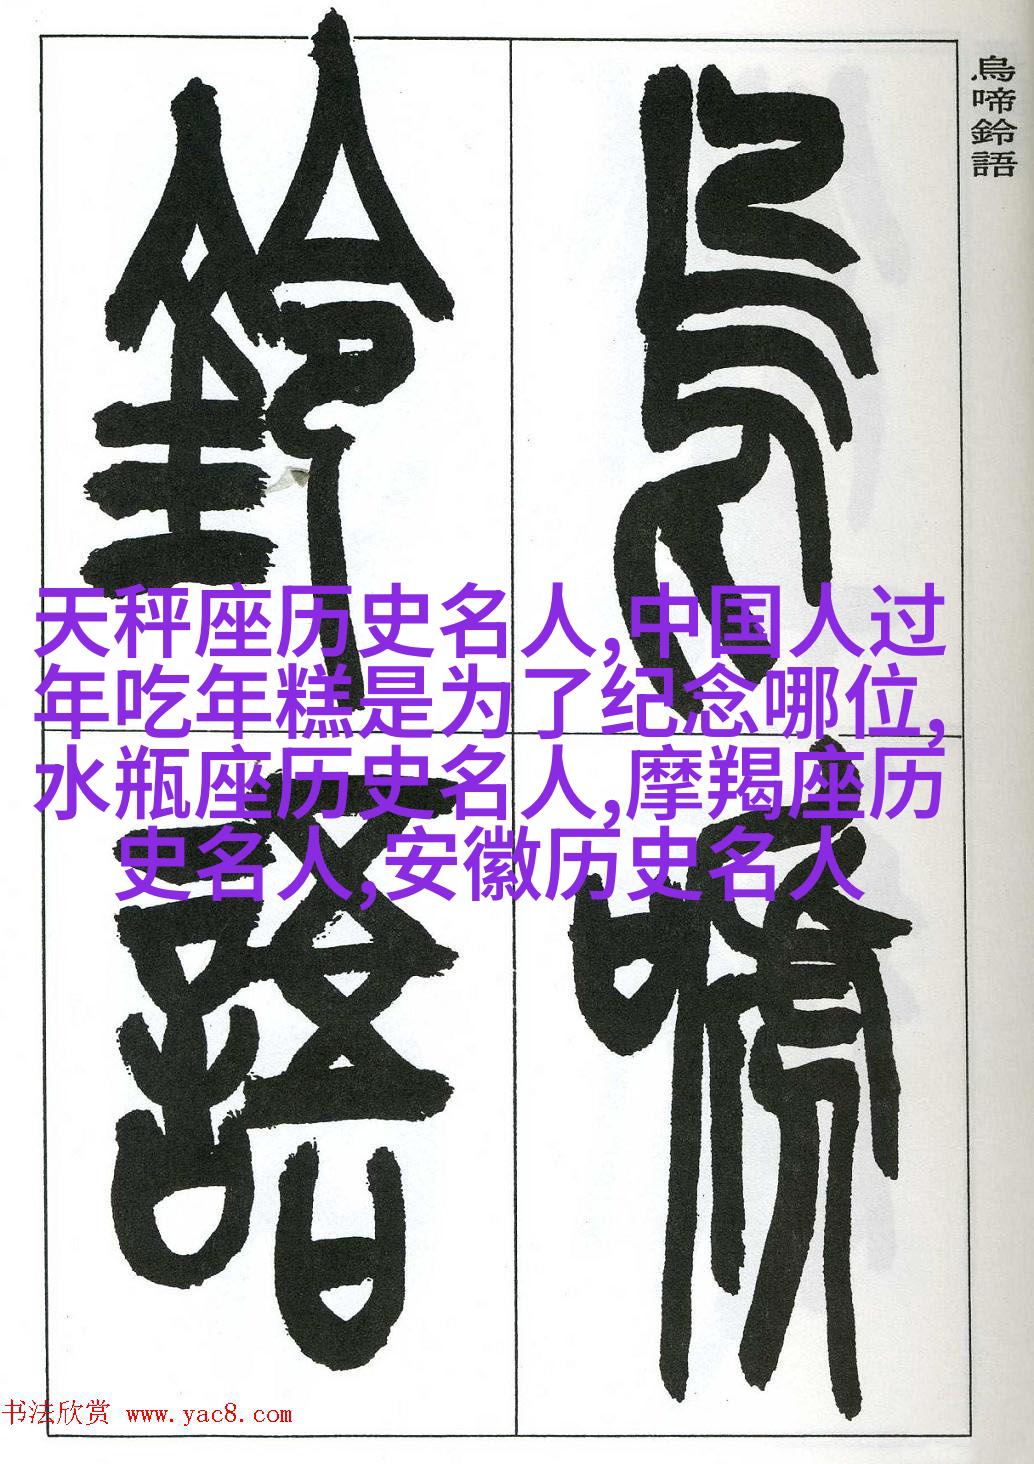 烏啼鈴語
烏啼
鈴語
天秤座历史名人,中国人过
年吃年糕是为了纪念哪位,
水瓶座历史名人,摩羯座历
史名人,安徽历史名人
书法欣赏 www.yac8.com